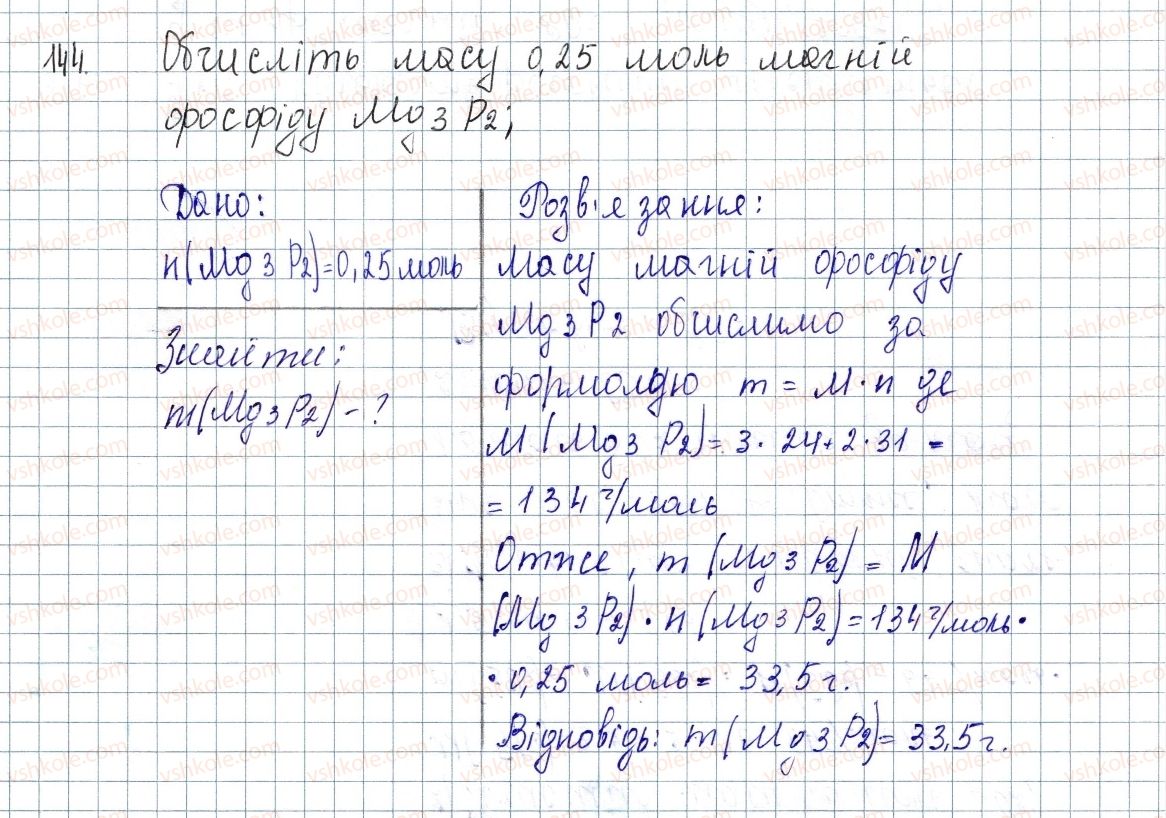 144. Обчисліть масу 0,25 моль магній
фосфіду Mg3P2;
Дано:
n(Mg3P2)=0,25 моль
Знайти:
m(Mg3P2)-?
Розв'язання:
Масу магній фосфіду
Mg3P2 обчислимо за
формолдю m = M·n де
M(Mg3P2)=3·24+2·31 =
= 134 г/моль
Отже, m(Mg3P2) = M
(Mg3P2)·n(Mg3P2)=134 г/моль·
·0,25 моль= 33,5 г.
Відповідь: m(Mg3P2)=33,5 г.